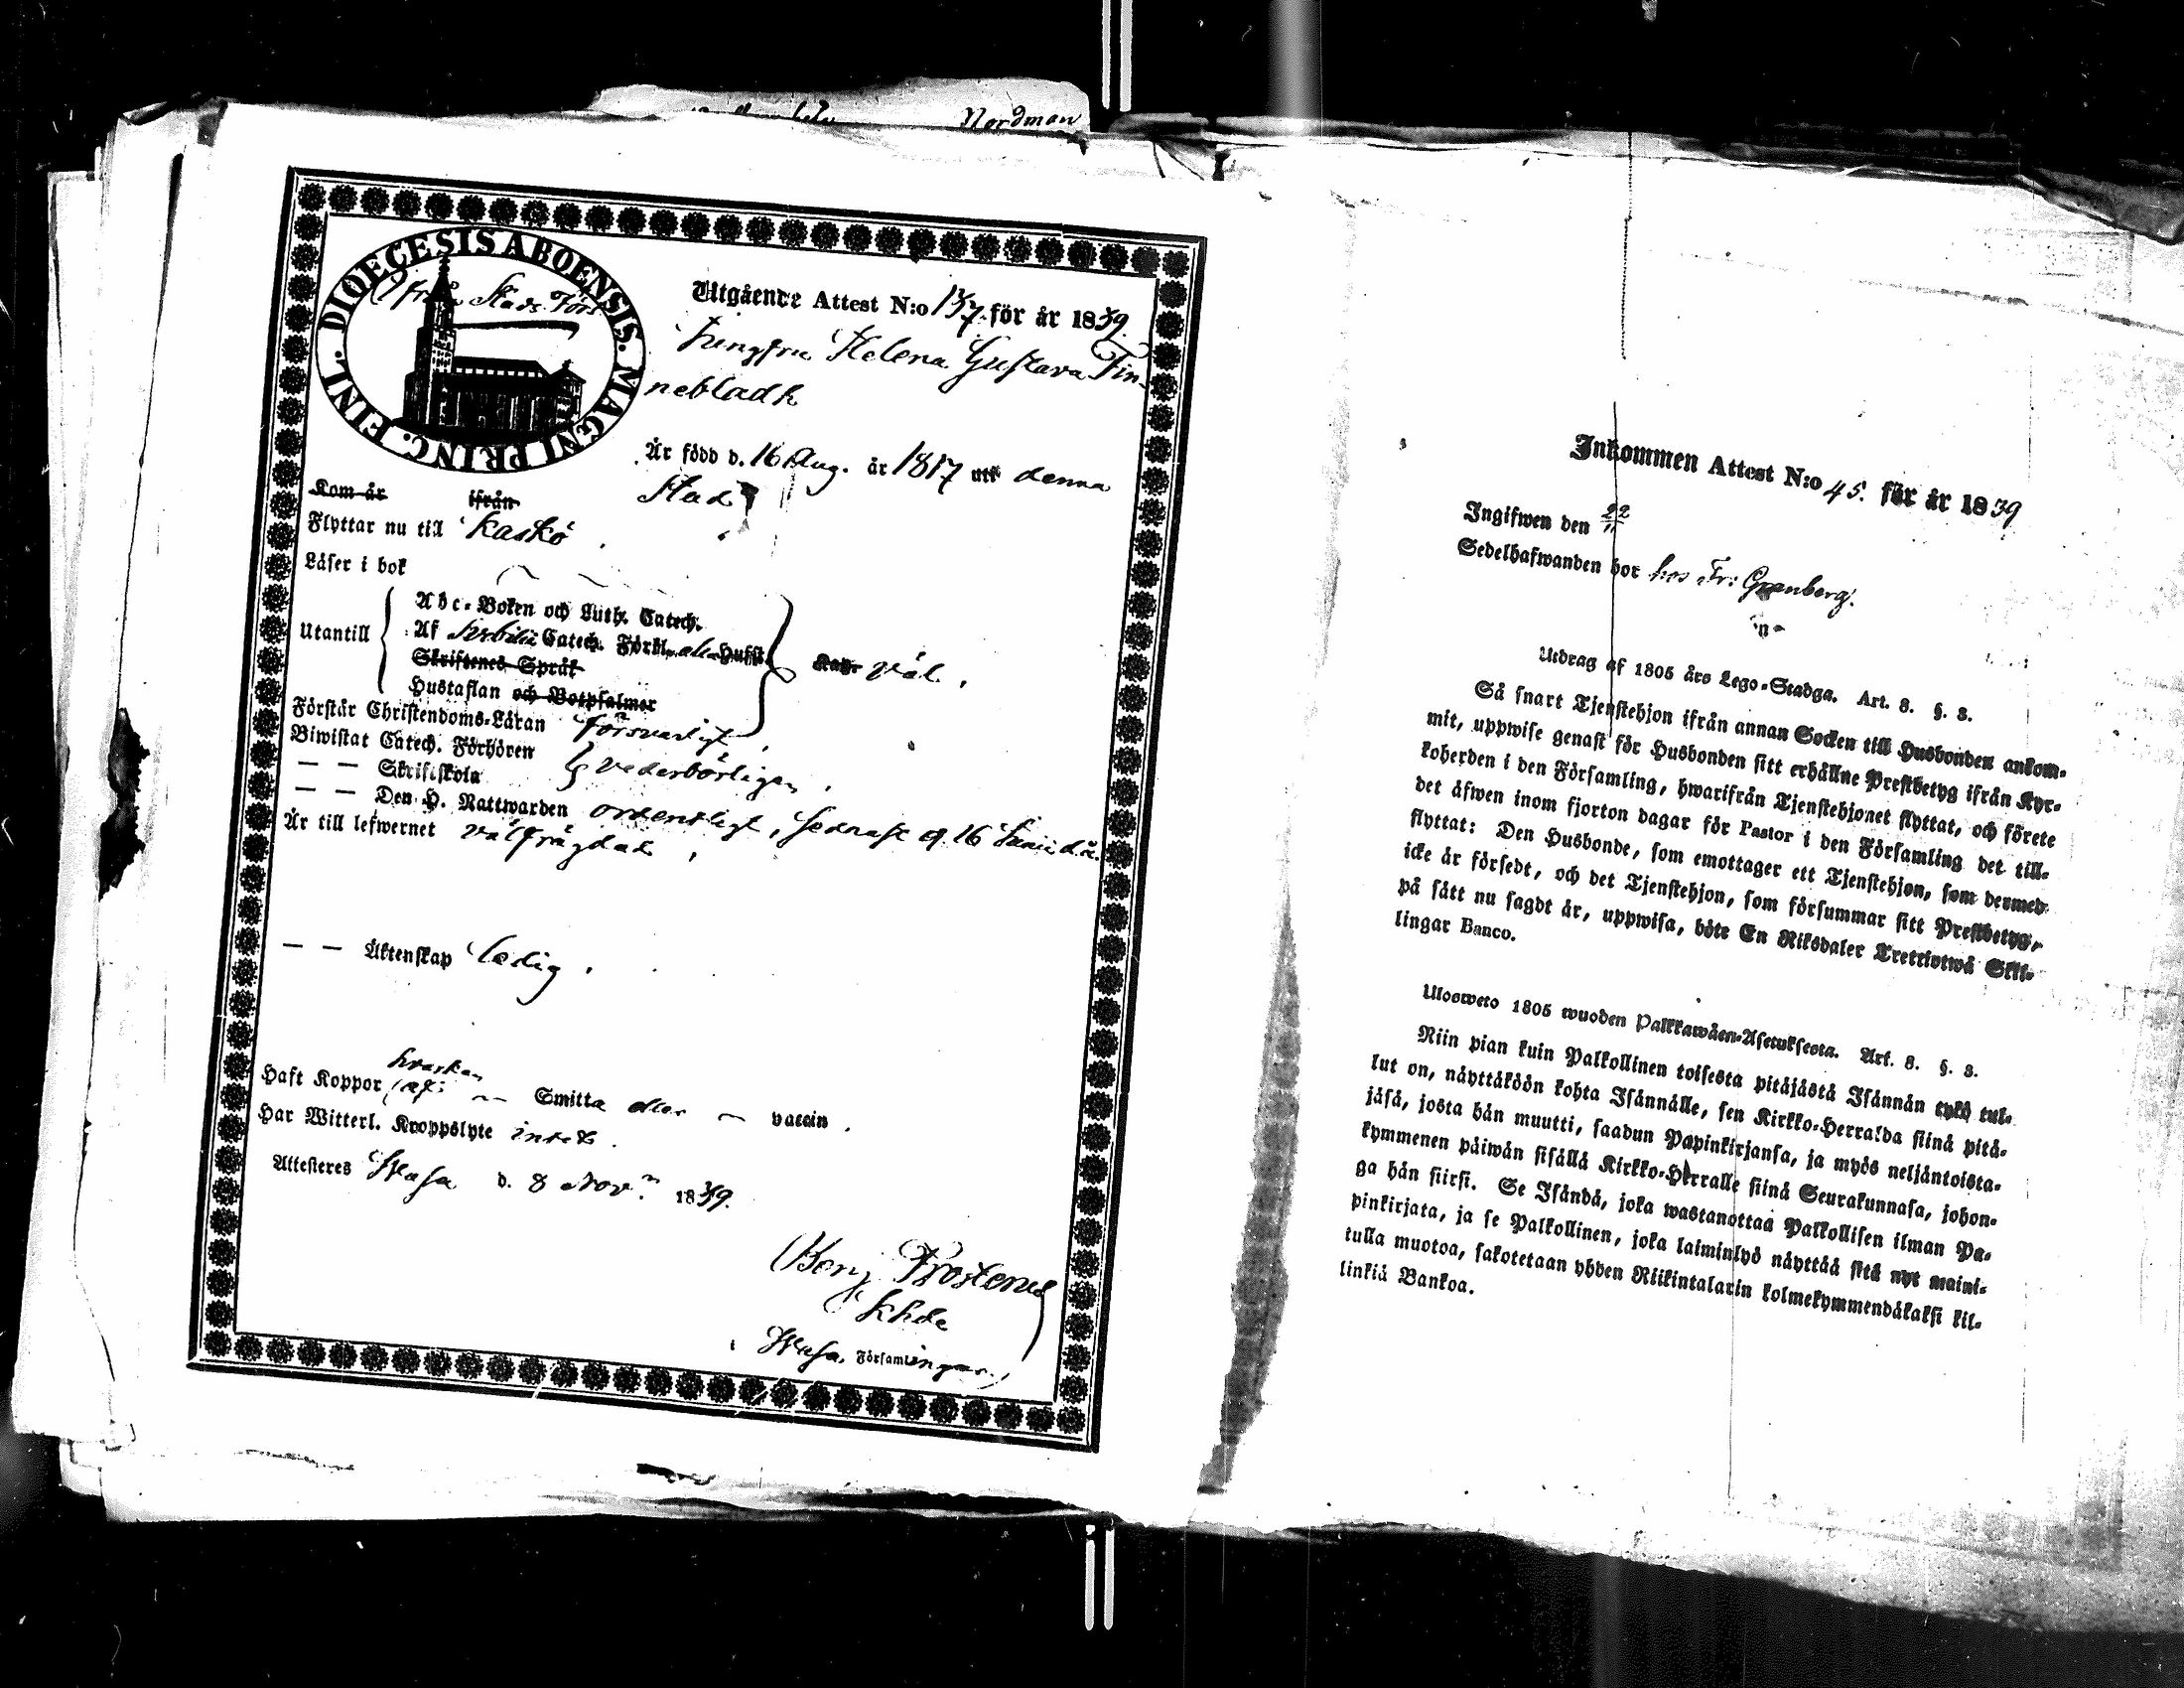 Nordman
DIOECESIS ABOENSIS. MAGNI PRINC. FINL.
Ifrån Stads Förs
Utgående Attest N:o 137. för år 1839.
Jungfru Helena Gustava Fin-
nebladh
Är född d. 16 Aug. år 1817 uti denna
Stad
Kom år ifrån
Flyttar nu till Kaskö.
Läser i bok
Utantill
Abc-Boken och Luth. Catech.
Af Svebilii Catech. Förkl. Hufst.
Skriftenes Språk
Hustaflan och Botpsalmer
Kap. väl.
Förstår Christendoms-Läran försvarligt,
Biwistat Catech. Förhören
— — Skriftskola vederbörligen,
— — Den H. Nattwarden ordentligt, sednast d. 16 Junii d.å.
Är till lefwernet välfrägdad,
— — Äktenskap ledig.
hvarken
Haft Koppor — Smitta eller — vaccin.
Har Witterl. Kroppslyte intet.
Attesteres Wasa d. 8 Nov. 1839.
Benj. Frosterus
Khde
Wasa Församlingar
Inkommen Attest N:o 45. för år 1839
Ingifwen den 22/11
Sedelhafwanden bor hos Fr: Granberg.
Utdrag af 1805 års Lego-Stadga. Art. 8. §. 3.
Så snart Tjenstehjon ifrån annan Socken till Husbonden ankom-
mit, uppwise genast för Husbonden sitt erhållne Prestbetyg ifrån Kyr-
koherden i den Församling, hwarifrån Tjenstehjonet flyttat, och förete
det äfwen inom fjorton dagar för Pastor i den Församling det till-
flyttat: Den Husbonde, som emottager ett Tjenstehjon, som dermed
icke är försedt, och det Tjenstehjon, som försummar sitt Prestbetyg,
på sätt nu sagdt är, uppwisa, böte En Riksdaler Tretiotwå Skil-
lingar Banco.
Ulosweto 1805 wuoden Palkkawäen-Asetuksesta. Art. 8. §. 3.
Niin pian kuin Palkollinen toisesta pitäjästä Isännän tykö tul-
lut on, näyttäköön kohta Isännälle, sen Kirkko-Herralda siinä pitä-
jäsä, josta hän muutti, saadun Papinkirjansa, ja myös neljäntoista-
kymmenen päiwän sisällä Kirkko-Herralle siinä Seurakunnasa, johon-
ga hän siirsi. Se Isändä, joka wastanottaa Palkollisen ilman Pa-
pinkirjata, ja se Palkollinen, joka laiminlyö näyttää sitä nyt maini-
tulla muotoa, sakotetaan yhden Riikintalarin kolmekymmendäkaksi kil-
linkiä Bankoa.